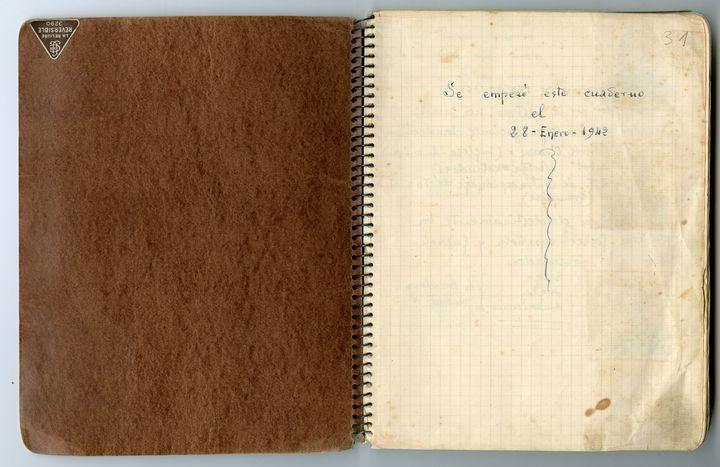 LA RELIURE
REVERSIBLE
3290
31
Se empezó este cuaderno
el
28-Enero-1942